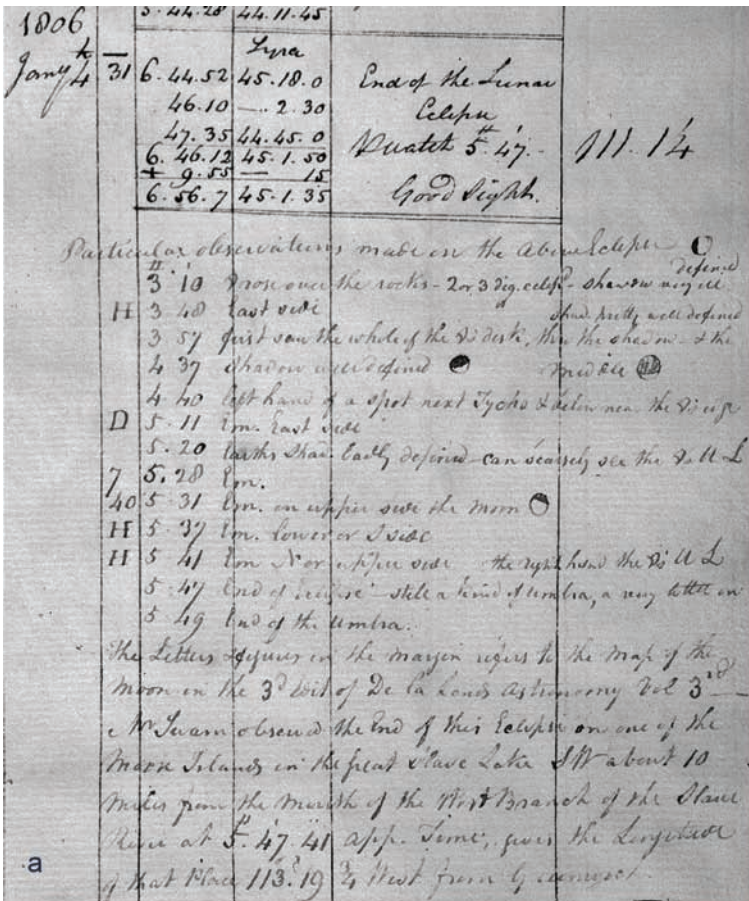 1806
5.44.28 44.11.45
Lyra
Jany 4 31 6.44.52 45.18.0 End of the Lunar
46.10 — 2.30 Eclipse
47.35 44.45.0
6.46.12 45.1.50 Watch 5.47. 111.14
+ 9.55 — 15
6.56.7 45.1.35 Good Sight.
Particular observations made on the above Eclipse
defined
3.10 Arose over the rocks - 2 or 3 dig. eclipd - shadow very ill
H 3 48 East side shad. pretty well defined
3 57 first saw the whole of the disk, thro the shadow - & the
4 37 Shadow well defined middle
4 40 left hand of a spot next Tycho & below near the edge
D 5.11 Em. East side
5.20 Earths Shad. badly defined - can scarcely see the U L
7 5.28 Em.
40 5.31 Em. on upper side the moon
H 5.37 Em. lower or S side
H 5 41 Em N or upper side the right hand the U L
5.47 End of Eclipse still a kind of umbra, a very little on
5 49 End of the Umbra.
The Letters & figures in the margin refers to the Map of the
Moon in the 3d Edit of De la Lands Astronomy Vol 3rd
Mr observed the End of this Eclipse on one of the
Islands in the Great Slave Lake SW about 10
Miles from the Mouth of the West Branch of the Slave
River at 5.47.41 app. Time, gives the Longitude
of that Place 113.19 3/4 West from Greenwich.
a